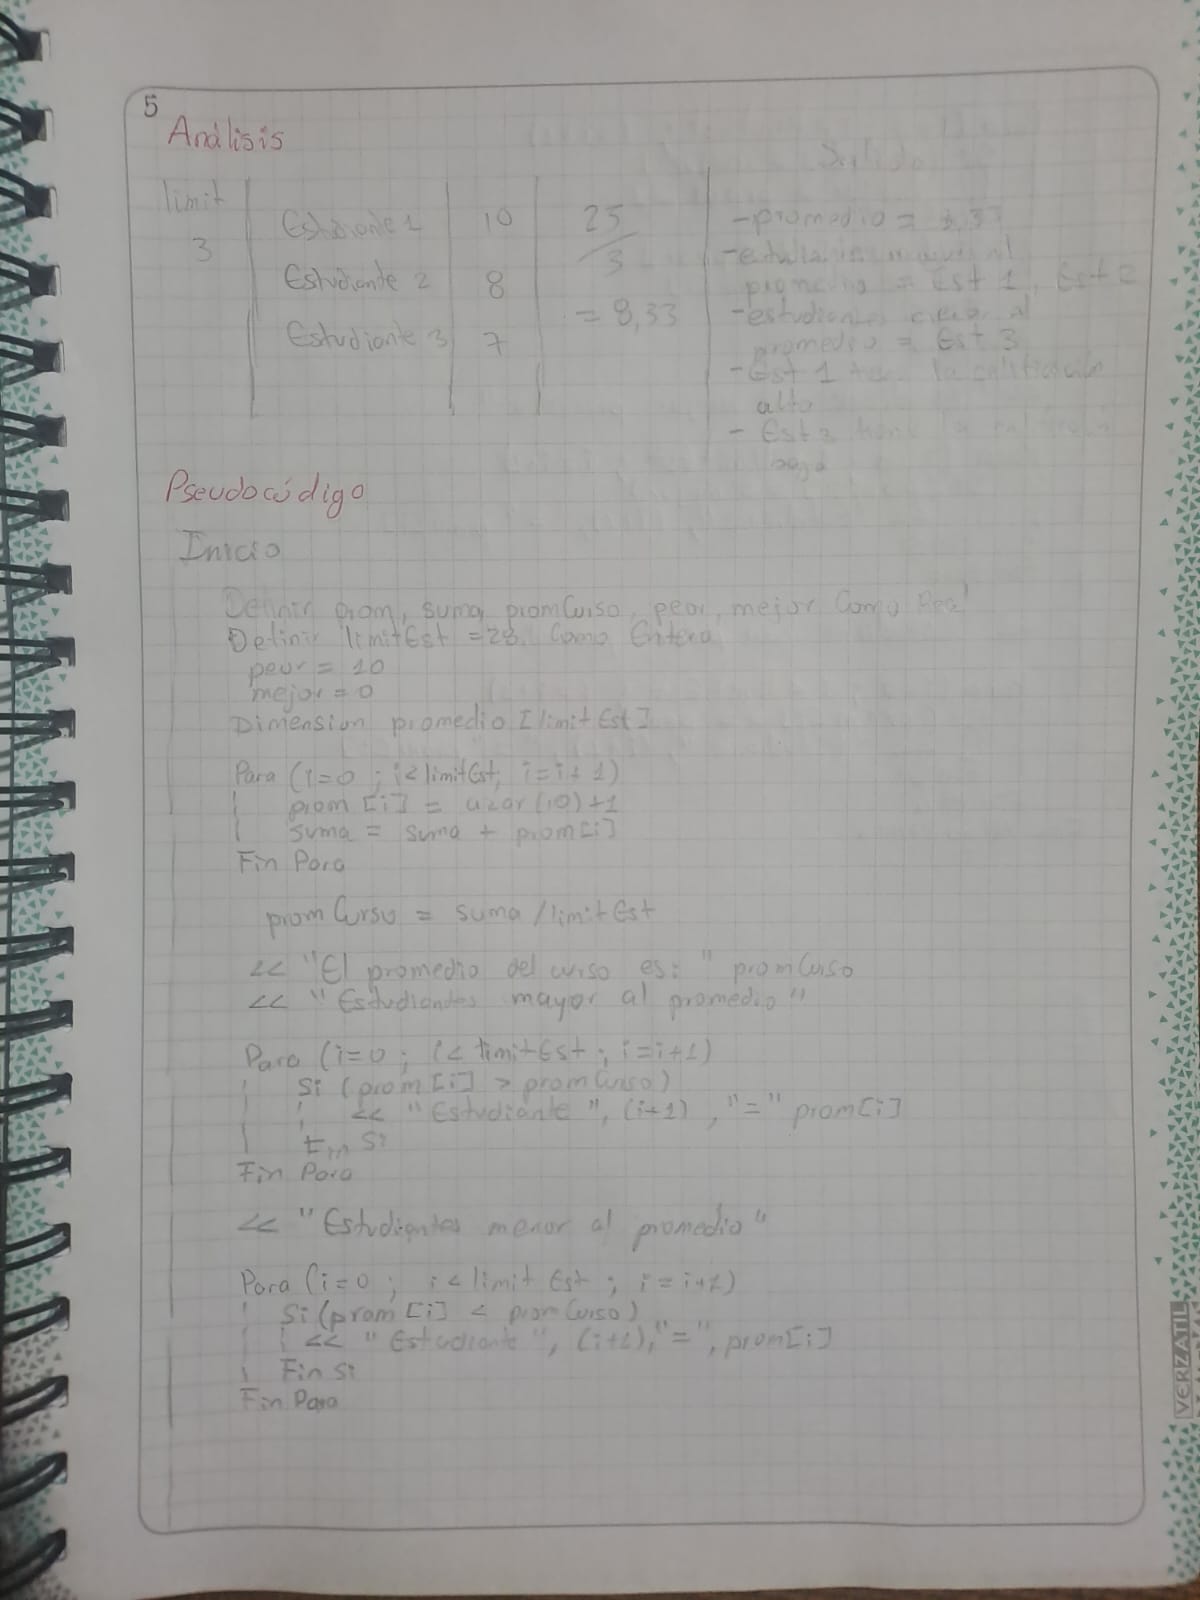 5
Análisis
Salida
limit
3
Estudiante 1 10
Estudiante 2 8
Estudiante 3 7
25
3
= 8,33
-promedio =
promedio = Est 1, Est 2
-estudiantes al
promedio = Est 3
-Est 1 la calificación
alta
- Est la
Pseudocódigo
Inicio
Definir prom, suma, promCurso, peor, mejor Como Real
Definir limitEst =28 Como Entero
peor = 10
mejor = 0
Dimension promedio [limitEst]
Para (i=0 ; i<limitEst; i=i+1)
prom [i] = azar(10)+1
suma = suma + prom[i]
Fin Para
prom Curso = suma /limitEst
<< "El promedio del curso es: " promCurso
<< "Estudiantes mayor al promedio"
Para (i=0 ; i< limitEst ; i=i+1)
Si (prom[i] > promCurso)
<< "Estudiante ", (i+1) ,"=" prom[i]
Fin Si
Fin Para
<< "Estudiantes menor al promedio"
Para (i=0 ; i<limit Est ; i = i+1)
Si (prom [i] < promCurso)
<< "Estudiante ", (i+1),"=", prom[i]
Fin Si
Fin Para
VERZATIL